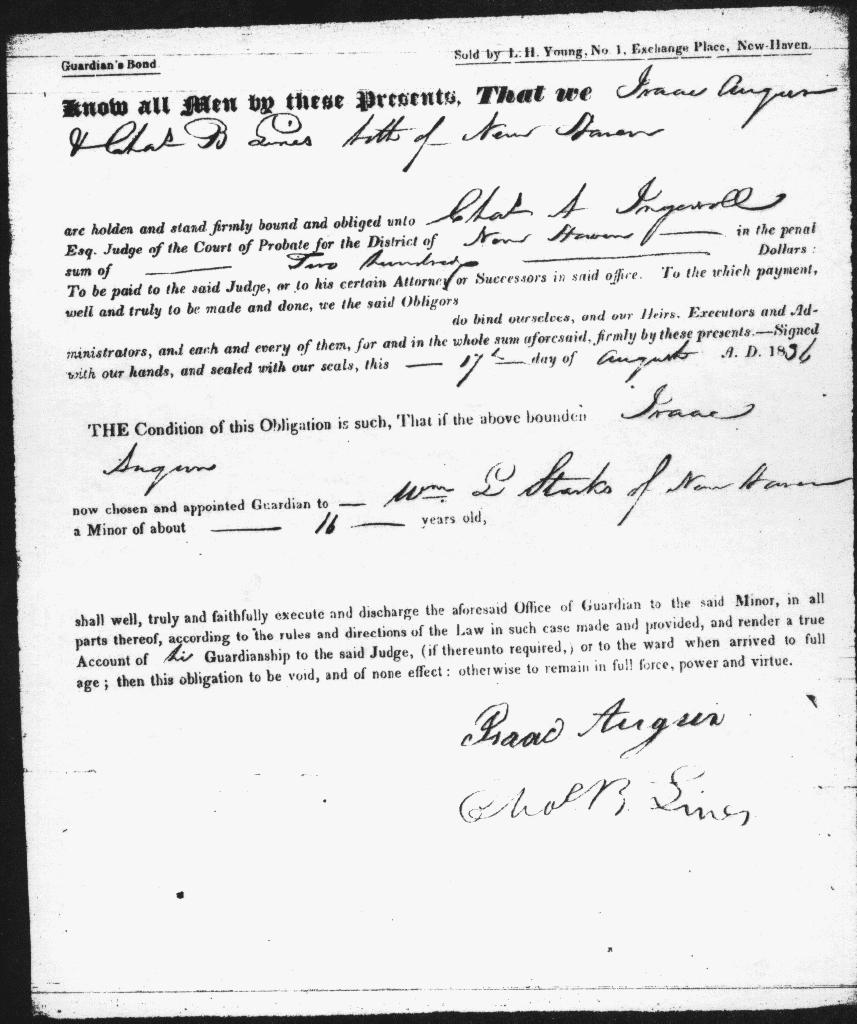 Guardian's Bond
Sold by L. H. Young, No. 1, Exchange Place, New-Haven.
Know all Men by these Presents, That we Isaac Augur
& Chas B Lines both of New Haven
are holden and stand firmly bound and obliged unto Chas A Ingersoll
Esq. Judge of the Court of Probate for the District of New Haven in the penal
sum of Two hundred Dollars:
To be paid to the said Judge, or to his certain Attorney or Successors in said office. To the which payment,
well and truly to be made and done, we the said Obligors
do bind ourselves, and our Heirs. Executors and Ad-
ministrators, and each and every of them, for and in the whole sum aforesaid, firmly by these presents.—Signed
with our hands, and sealed with our seals, this — 17th — day of August A. D. 1836
THE Condition of this Obligation is such, That if the above bounden Isaac
Augur
now chosen and appointed Guardian to — Wm L Starks of New Haven
a Minor of about — 16 — years old,
shall well, truly and faithfully execute and discharge the aforesaid Office of Guardian to the said Minor, in all
parts thereof, according to the rules and directions of the Law in such case made and provided, and render a true
Account of his Guardianship to the said Judge, (if thereunto required,) or to the ward when arrived to full
age; then this obligation to be void, and of none effect: otherwise to remain in full force, power and virtue.
Isaac Augur
Chas B Lines